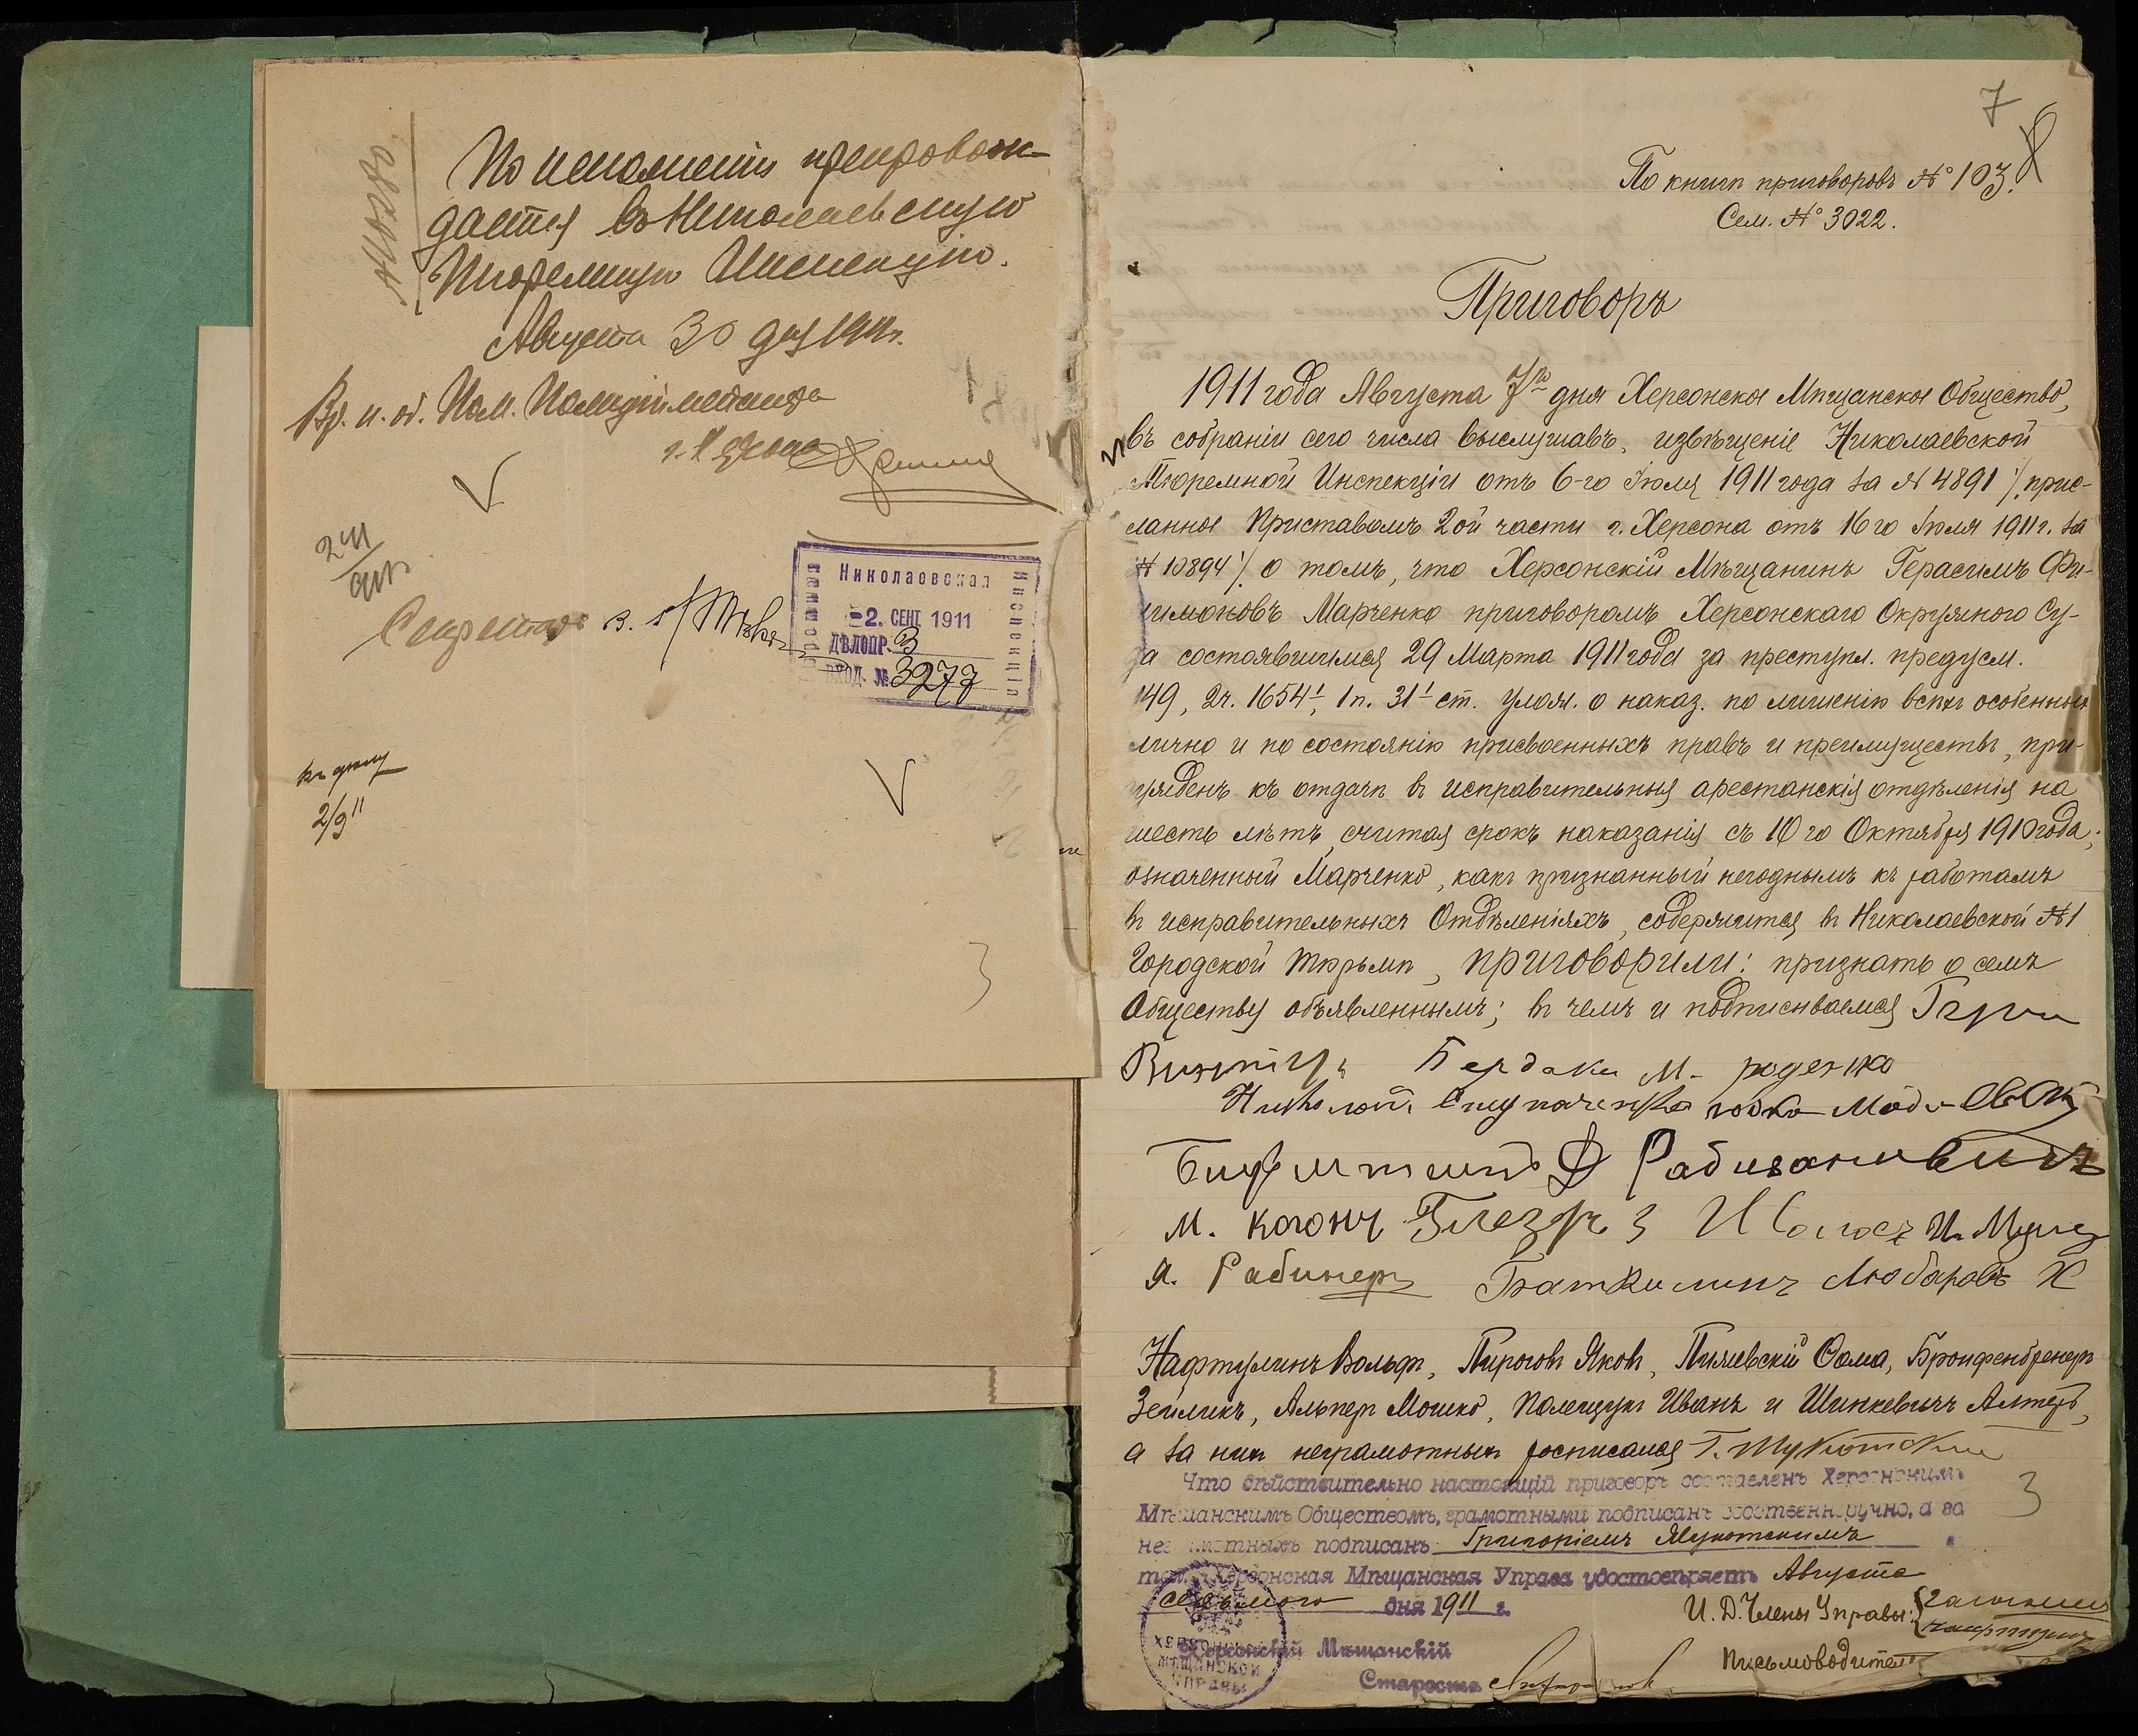 По исполненіи препровож-
дается въ Николаевскую
Тюремную Инспекцію.
Августа 30 дня 1911 г.
Вр. и. об. Пом. Полиціймейстера
г. Херсона
Секретарь
Николаевская
Тюремная
Инспекція
2. СЕНТ 1911
ДѢЛОПР. 3
ВХОД. № 3277
къ дѣлу
2/9 11
7
По книгѣ приговоровъ № 103.
Сем. № 3022.
Приговоръ
1911 года Августа 7го дня Херсонское Мѣщанское Общество,
въ собраніи сего числа выслушавъ, извѣщеніе Николаевской
Тюремной Инспекціи отъ 6-го Іюля 1911 года за № 4891 /, прис-
ланное Приставомъ 2ой части г. Херсона отъ 16го Іюля 1911 г. за
№ 10894 /. о томъ, что Херсонскій Мѣщанинъ Герасимъ Фи-
лимоновъ Марченко приговоромъ Херсонскаго Окружного Су-
да состоявшимся 29 Марта 1911 года за преступл. предусм.
149, 2ч. 1654¹, 1 п. 31¹ ст. Улож. о наказ. по лишеніи всѣхъ особенныхъ
лично и по состоянію присвоенныхъ правъ и преимуществъ, при-
сужденъ къ отдачѣ въ исправительныя арестанскія отдѣленія на
шесть лѣтъ, считая срокъ наказанія съ 10го Октября 1910 года;
означенный Марченко, какъ признанный негоднымъ къ работамъ
въ исправительныхъ Отдѣленіяхъ, содержится въ Николаевской № 1
Городской тюрьмѣ, приговорили: признать о семъ
Обществу объявленнымъ; въ чемъ и подписываемся
Бердака М. роденко
Николай
Рабиновичъ
М. Когонъ Глезръ З
Я. Рабинеръ Баткилинъ Любаровъ Х
Нафтулинъ Вольфъ, Пироговъ Яковъ, Пилевскій Фома, Бронфенбренеръ
Зейликъ, Альперъ Мошко, Полещукъ Иванъ и Шинкевичъ Алтеръ,
а за нихъ неграмотныхъ росписался Г. Жукотскій
Что дѣйствительно настоящій приговоръ составленъ Херсонскимъ
Мѣщанскимъ Обществомъ, грамотными подписанъ собственноручно, а за
неграмотныхъ подписанъ Григоріемъ Жукотскимъ
Херсонская Мѣщанская Управа удостовѣряетъ Августа
седьмого дня 1911 г.
И. Д. Члены Управы:
Херсонскій Мѣщанскій
Письмоводитель
Староста
ХЕРСОНСКОЙ
МѢЩАНСКОЙ
УПРАВЫ
3